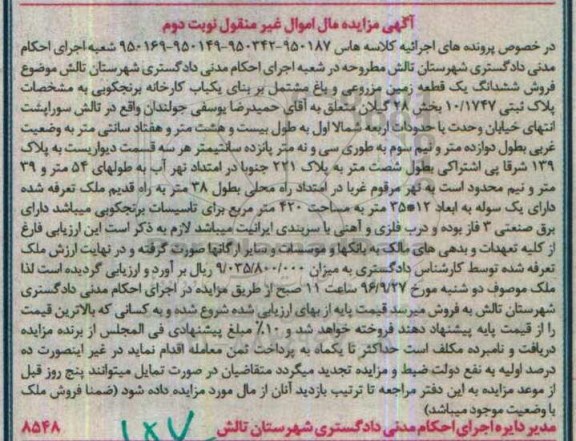 آگهی مزایده مال اموال غیر منقول نوبت دوم
در خصوص پرونده های اجرائیه کلاسه هاس ۹۵۰۱۸۷-۹۵۰۳۴۲-۹۵۰۱۴۹-۹۵۰۱۶۹ شعبه اجرای احکام
مدنی دادگستری شهرستان تالش مطروحه در شعبه اجرای احکام مدنی دادگستری شهرستان تالش موضوع
فروش ششدانگ یک قطعه زمین مزروعی و باغ مشتمل بر بنای یکباب کارخانه برنجکوبی به مشخصات
پلاک ثبتی ۱۰/۱۷۴۷ بخش ۲۸ گیلان متعلق به آقای حمیدرضا یوسفی جولندان واقع در تالش سوراپشت
انتهای خیابان وحدت با حدودات اربعه شمالا اول به طول بیست و هشت متر و هفتاد سانتی متر به وضعیت
غربی بطول دوازده متر و نیم سوم به طوری سی و نه متر پانزده سانتیمتر هر سه قسمت دیواریست به پلاک
۱۳۹ شرقا پی اشتراکی بطول شصت متر به پلاک ۲۲۱ جنوبا در امتداد نهر آب به طولهای ۵۴ متر و ۳۹
متر و نیم محدود است به نهر مرقوم غربا در امتداد راه محلی بطول ۳۸ متر به راه قدیم ملک تعرفه شده
دارای یک سوله به ابعاد ۱۲*۳۵ متر به مساحت ۴۲۰ متر مربع برای تاسیسات برنجکوبی میباشد دارای
برق صنعتی ۳ فاز بوده و درب فلزی و آهنی با سربندی ایرانیت میباشد لازم به ذکر است این ارزیابی فارغ
از کلیه تعهدات و بدهی های مالک به بانکها و موسسات و سایر ارگانها صورت گرفته و در نهایت ارزش ملک
تعرفه شده توسط کارشناس دادگستری به میزان ۹/۰۳۵/۸۰۰/۰۰۰ ریال بر آورد و ارزیابی گردیده است لذا
ملک موصوف دو شنبه مورخ ۹۶/۹/۲۷ ساعت ۱۱ صبح از طریق مزایده در اجرای احکام مدنی دادگستری
شهرستان تالش به فروش میرسد قیمت پایه از بهای ارزیابی شده شروع شده و به کسانی که بالاترین قیمت
را از قیمت پایه پیشنهاد دهند فروخته خواهد شد و ۱۰٪ مبلغ پیشنهادی فی المجلس از برنده مزایده
دریافت و نامبرده مکلف است حداکثر تا یکماه به پرداخت ثمن معامله اقدام نماید در غیر اینصورت ده
درصد اولیه به نفع دولت ضبط و مزایده تجدید میگردد متقاضیان در صورت تمایل میتوانند پنج روز قبل
از موعد مزایده به این دفتر مراجعه تا ترتیب بازدید آنان از مال مورد مزایده داده شود (ضمنا فروش ملک
با وضعیت موجود میباشد)
مدیر دایره اجرای احکام مدنی دادگستری شهرستان تالش ۸۵۴۸